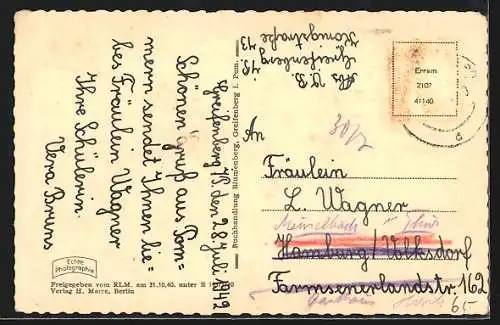 Greifenberg 13. den 28. Juli 1942
Schönen Gruß aus Pom-
mern sendet Ihnen lie-
bes Fräulein Wagner
Ihre Schülerin.
Vera Bruns
Echte
Photographie
Freigegeben vom RLM. am 31.10.40. unter
Verlag H. Marre, Berlin
Buchhandlung Blumenberg, Greifenberg i. Pom.
Abs. V. B.
Greifenberg
Königstraße 13
Errem
2107
41140
An
Fräulein
L. Wagner
Hamburg/Volksdorf
Farmsenerlandstr. 162
65